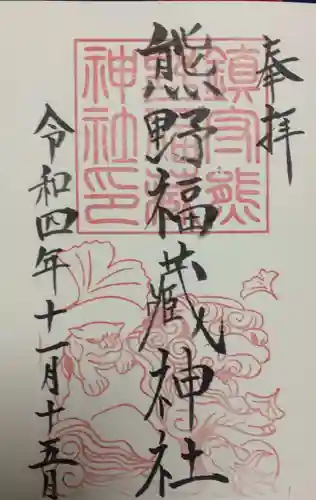 奉拝
鎮守熊
野福蔵
神社印
熊野福蔵神社
令和四年十一月十五日